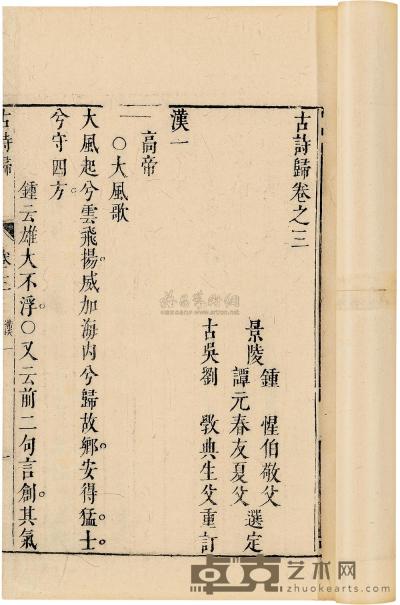 古詩歸卷之三
景陵 鍾 惺伯敬父
譚元春友夏父 選定
古吳劉 斆典生父重訂
漢一
高帝
○大風歌
大風起兮雲飛揚。威加海內兮歸故鄉。安得猛士
兮守四方。
鍾云雄大不浮。○又云前二句言創其氣
古詩歸
卷三
漢一
一
卓克艺术网
zhuokearts.com